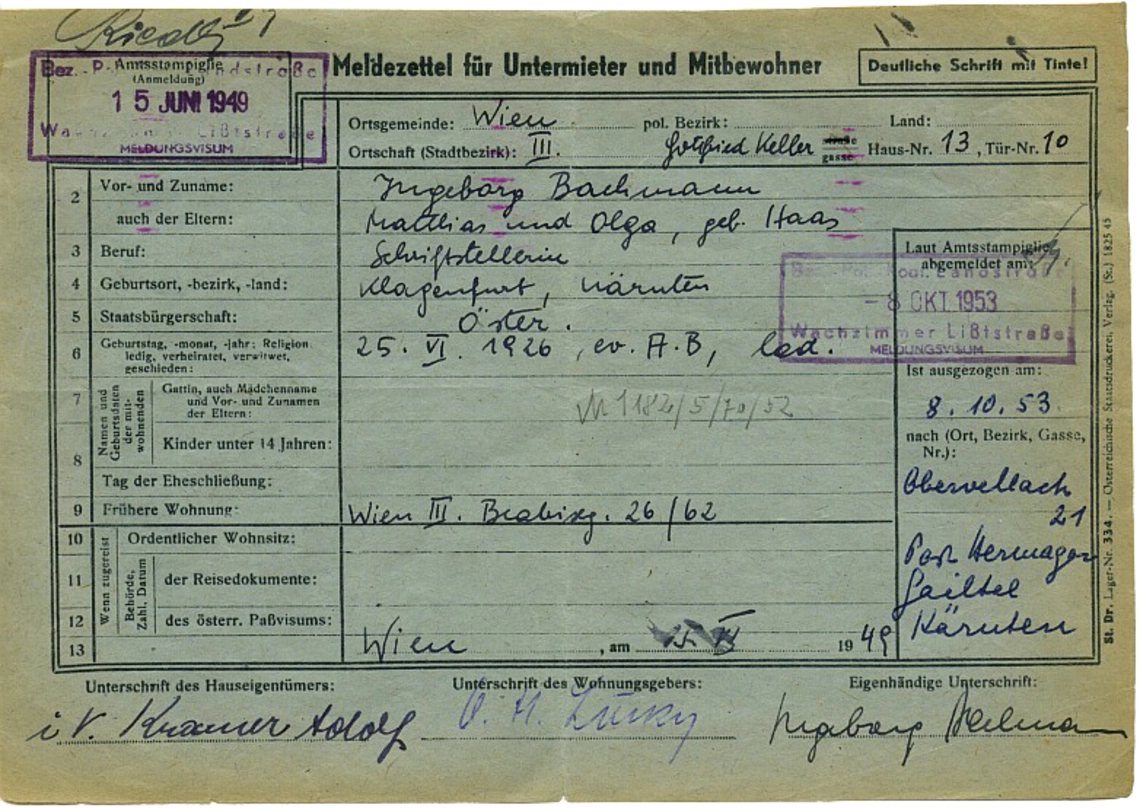 Amtsstampiglie
(Anmeldung)
Bez.-P Landstraße
15 JUNI 1949
Wachzimmer Lißtstraße
MELDUNGSVISUM
Meldezettel für Untermieter und Mitbewohner
Deutliche Schrift mit Tinte!
Ortsgemeinde: Wien pol. Bezirk: Land:
Ortschaft (Stadtbezirk): III. Gottfried Keller straße gasse Haus-Nr. 13, Tür-Nr. 10
2 Vor- und Zuname: Ingeborg Bachmann
auch der Eltern: Matthias und Olga, geb. Haas
3 Beruf: Schriftstellerin
4 Geburtsort, -bezirk, -land: Klagenfurt, Kärnten
5 Staatsbürgerschaft: Öster.
6 Geburtstag, -monat, -jahr; Religion ledig, verheiratet, verwitwet, geschieden: 25. VI. 1926, ev. A.B, led.
Namen und Geburtsdaten der mitwohnenden
7 Gattin, auch Mädchenname und Vor- und Zunamen der Eltern:
1182/5/70/52
8 Kinder unter 14 Jahren:
Tag der Eheschließung:
9 Frühere Wohnung: Wien III. 26/62
Wenn zugereist
10 Ordentlicher Wohnsitz:
Behörde, Zahl, Datum
11 der Reisedokumente:
12 des österr. Paßvisums:
13 Wien, am 1949
Laut Amtsstampiglie
abgemeldet am:
Bez.-Pol.-Koo. Landstraße
- 8 OKT. 1953
Wachzimmer Lißtstraße
MELDUNGSVISUM
Ist ausgezogen am:
8. 10. 53
nach (Ort, Bezirk, Gasse,
Nr.):
Obervellach
21
Post Hermagor
Gailtal
Kärnten
St. Dr. Lager-Nr. 334. — Österreichische Staatsdruckerei, Verlag. (St.) 1825 45
Unterschrift des Hauseigentümers:
i. V. Kramer Adolf
Unterschrift des Wohnungsgebers:
Eigenhändige Unterschrift:
Ingeborg Bachmann